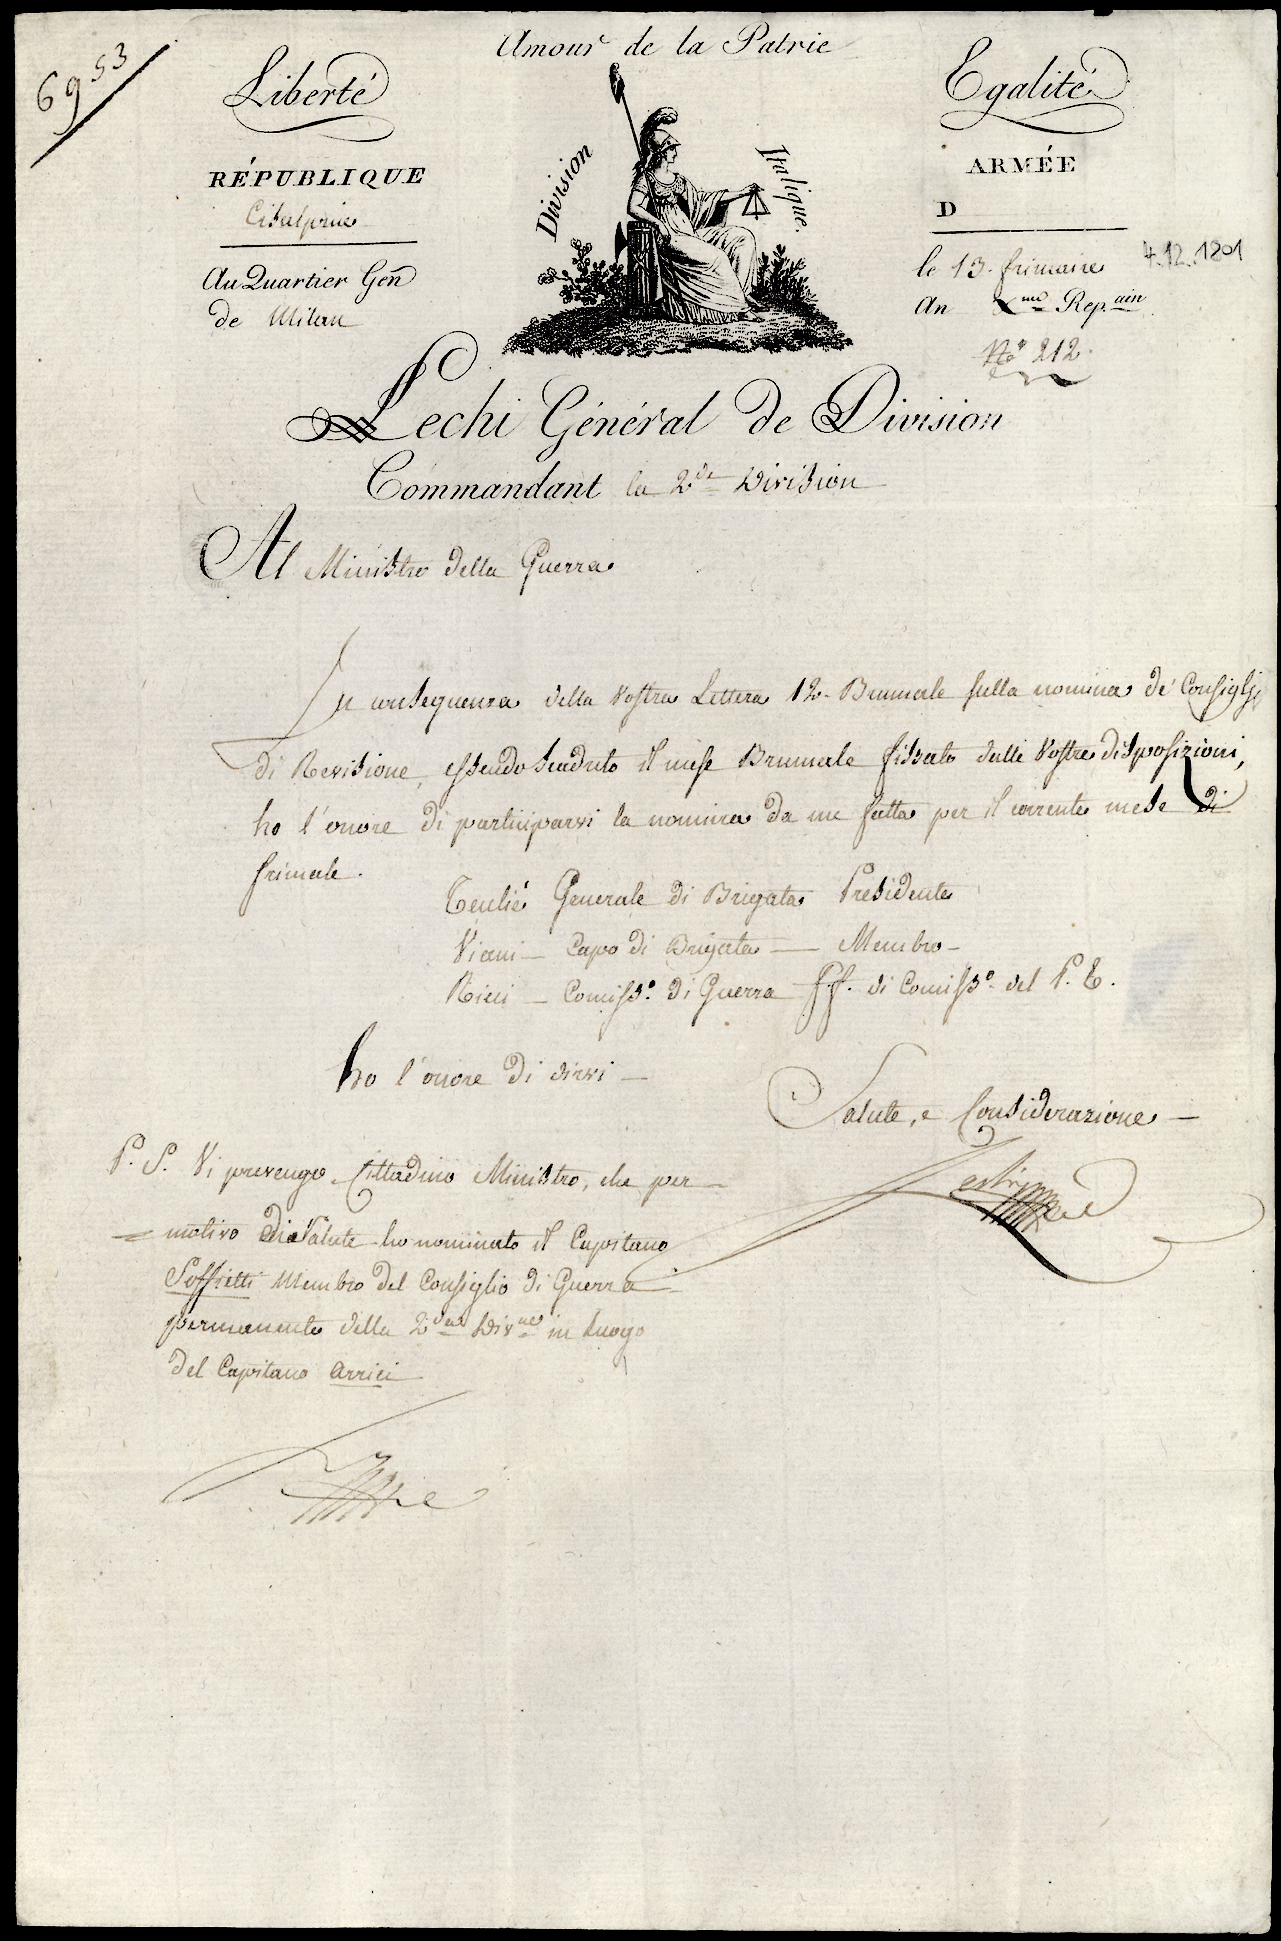 6953
Amour de la Patrie
Liberté
Egalité
Division Italique.
RÉPUBLIQUE
Cisalpine
ARMÉE
D
Au Quartier Gén
de Milan
le 13. frimaire
4.12.1801
An Xme Rep.ain
No 212.
Lechi Général de Division
Commandant la 2de Division
Al Ministro della Guerra
In conseguenza della Vostra Lettera 12. Brumale sulla nomina de' Consiglj
di Revisione, essendo scaduto il mese Brumale fissato dalle Vostre disposizioni,
ho l'onore di participarvi la nomina da me fatta per il corrente mese di
frimale.
Teulié Generale di Brigata Presidente
Viani — Capo di Brigata — Membro —
Ricci — Comisso. di Guerra ff. di Comisso. del P. E.
ho l'onore di dirvi —
Salute, e Considerazione —
P. S. Vi prevengo Cittadino Ministro, che per
motivo di Salute ho nominato il Capitano
Soffietti Membro del Consiglio di Guerra
permanente della 2da Divne in luogo
del Capitano Arrici